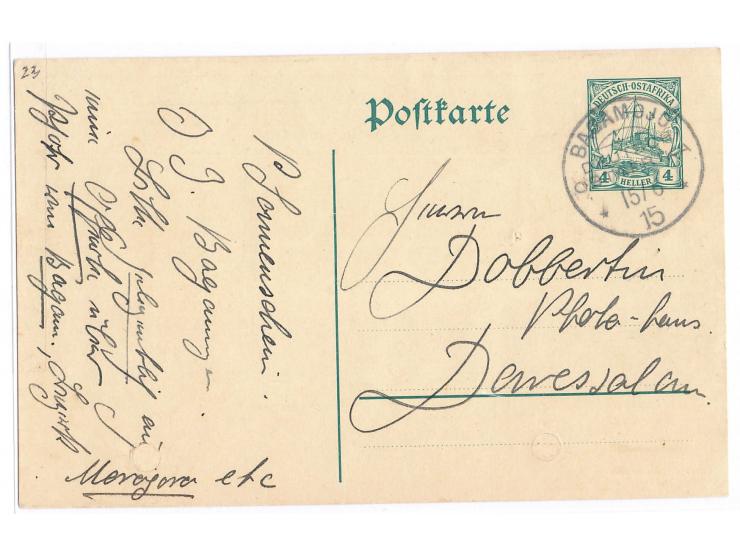 23
Postkarte
DEUTSCH-OSTAFRIKA
4 HELLER 4
BAGAMOJO
15/6
15
Herrn
Dobbertin
Photo-haus.
Daressalam.
P. Sonnenschein.
D. J. Bagamoj
Bitte gelegentlich um
eine Offerte über
von Bagam.,
Morogoro etc